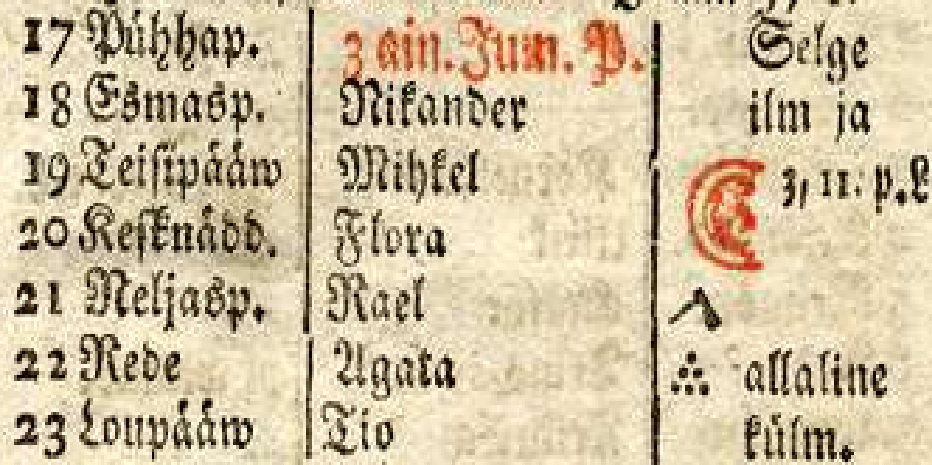 17 Pühhap. 3 kün. Jum. P. Selge
18 Esmasp. Nikander ilm ja
19 Teisipääw Mihkel 3, 11. p. L
20 Kesknädd. Flora
21 Neljasp. Rael
22 Rede Agata allaline
23 Loupääw Tio külm.